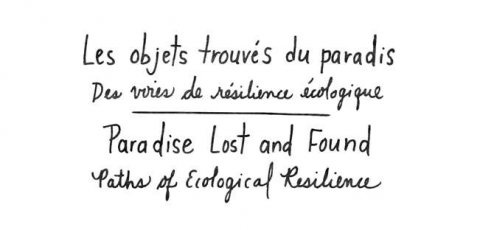 Les objets trouvés du paradis
Des voies de résilience écologique
Paradise Lost and Found
Paths of Ecological Resilience